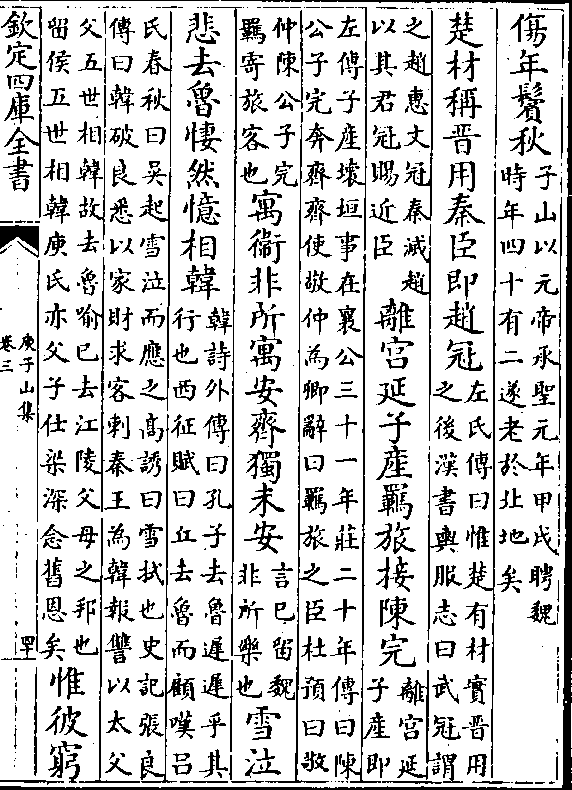 傷年鬢秋子山以元帝承聖元年甲戌聘魏
時年四十有二遂老於北地矣
楚材稱晉用秦臣即趙冠左氏傳曰惟楚有材實晉用
之後漢書輿服志曰武冠謂
之趙惠文冠秦滅趙
以其君冠賜近臣離宮延子產羈旅接陳完離宮延
子產即
左傳子產壞垣事在襄公三十一年莊二十年傳曰陳
公子完奔齊齊使敬仲為卿辭曰羈旅之臣杜預曰敬
仲陳公子完
羈寄旅客也寓衞非所寓安齊獨未安言已留魏
非所樂也雪泣
悲去魯悽然憶相韓韓詩外傳曰孔子去魯遲遲乎其
行也西征賦曰丘去魯而顧嘆吕
氏春秋曰吳起雪泣而應之高誘曰雪拭也史記張良
傳曰韓破良悉以家財求客刺秦王為韓報讐以太父
父五世相韓故去魯喻已去江陵父母之邦也
留侯五世相韓庾氏亦父子仕梁深念舊恩矣惟彼窮
欽定四庫全書
庾子山集
卷三
罕